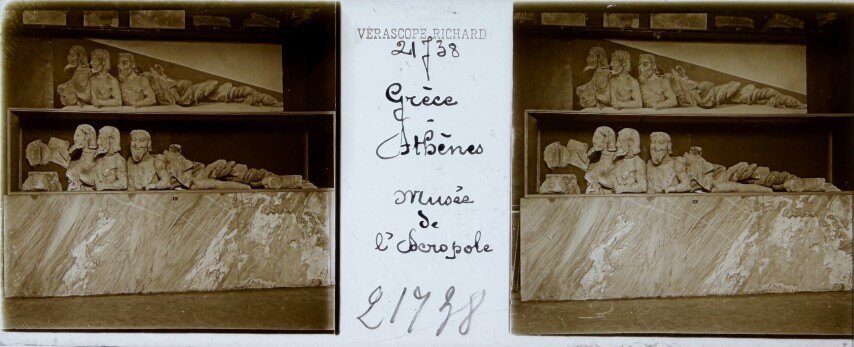 VÉRASCOPE RICHARD
21738
Grèce
-
Athènes
Musée
de
l'Acropole
21738